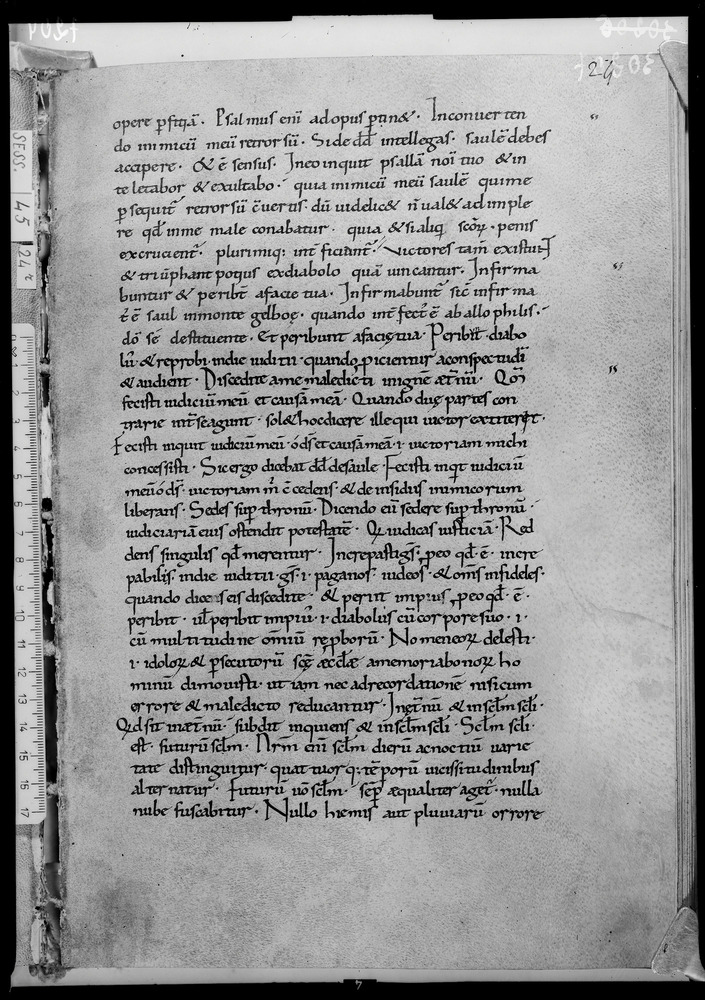 24
opere ꝑficiā. Psalmus enī ad opus ꝑtin&. In conuerten
do inimicū meū retrorsū. Si de dd̄ intellegas. saulē debes
accipere. & ē sensus. In eo inquit psallā noī tuo & in
te letabor & exultabo. quia inimicū meū saulē qui me
ꝑsequit̄ retrorsū c̄uertis. dū uidelic& n̄ ual& adimple
re qd̄ in me male conabatur. quia & si aliq scōꝝ penis
excrucient̄. plurimiq: int̄ficiant̄. Victores tam̄ existunt
& triūphant potius ex diabolo quā uincantur. Infirma
buntur & peribt̄ a facie tua. Infirmabunt̄ sic̄ infirma
t̄ ē saul in monte gelboę. quando int̄fect̄ ē ab allophilis.
dō sē destituente. Et peribunt a facie tua. Peribit diabo
lū. & reprobi in die iuditii. quando ꝓicientur a conspectu dī
& audient. Discedite a me maledicti in ignē æt̄nū. Qm̄
fecisti iudiciū meū et causā meā. Quando duę partes con
trarie int̄ se agunt. sol& hoc dicere ille qui uictor extiterit.
Fecisti inquit iudiciū meū. o ds̄ et causā meā .i. uictoriam michi
concessisti. Sic ergo dicebat dd̄ de saule. Fecisti inqt iudiciū
meū o ds̄. uictoriam m̄ c̄cedens. & de insidiis inimicorum
liberans. Sedes suꝑ thronū. Dicendo eū sedere suꝑ thronū.
iudiciariā eius ostendit potestatē. Qi iudicas iusticiā. Red
dens singulis qd̄ merentur. Increpasti gs̄. ꝑ eo qd̄ ē. incre
pabilis in die iuditii. gs̄ .i. paganos. iudeos. & om̄s infideles.
quando dicens eis discedite. & periit impius, ꝑ eo qd̄. ē.
peribit. ul̄ peribit impiū .i. diabolus cū corpore suo .i.
cū multitudine om̄iū reꝓborū. Nomen eoꝝ delesti.
.i. idoloꝝ & ꝑsecutorū scę æccl̄æ a memoria bonoꝝ ho
minū dimouisti. ut iam nec ad recordationē nisi cum
errore & maledicto reducantur. In æt̄nū & in sclm̄ scl̄i.
Qd sit in æt̄nū. subdit inquiens & in sclm̄ scl̄i. Sclm̄ scl̄i.
est. futurū sclm̄. Nrm̄ eni sclm̄ dierū ac noctiū uarie
tate distinguitur. quattuorq: tēporū uicissitudinibus
alternatur. Futurū uō sclm̄. seꝑ æqualiter aget̄. nulla
nube fuscabitur. Nullo hiemis aut pluuiarū orrore
SESS. 45 24r